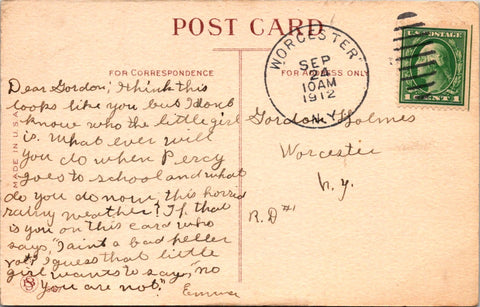 POST CARD
FOR CORRESPONDENCE
FOR ADDRESS ONLY
WORCESTER
SEP
24
10AM
1912
N.Y.
U.S. POSTAGE
CENT 1
MADE IN U.S.A.
Dear Gordon; I think this
looks like you but I don't
know who the little girl
is. What ever will
you do when Percy
goes to school and what
do you do now, this horrid
rainy weather? If that
is you on this card who
says, "I aint a bad feller
I guess that little
girl wants to say, "no
you are not."
Emma
Gordon Holmes
Worcester
N.Y.
R.D #1